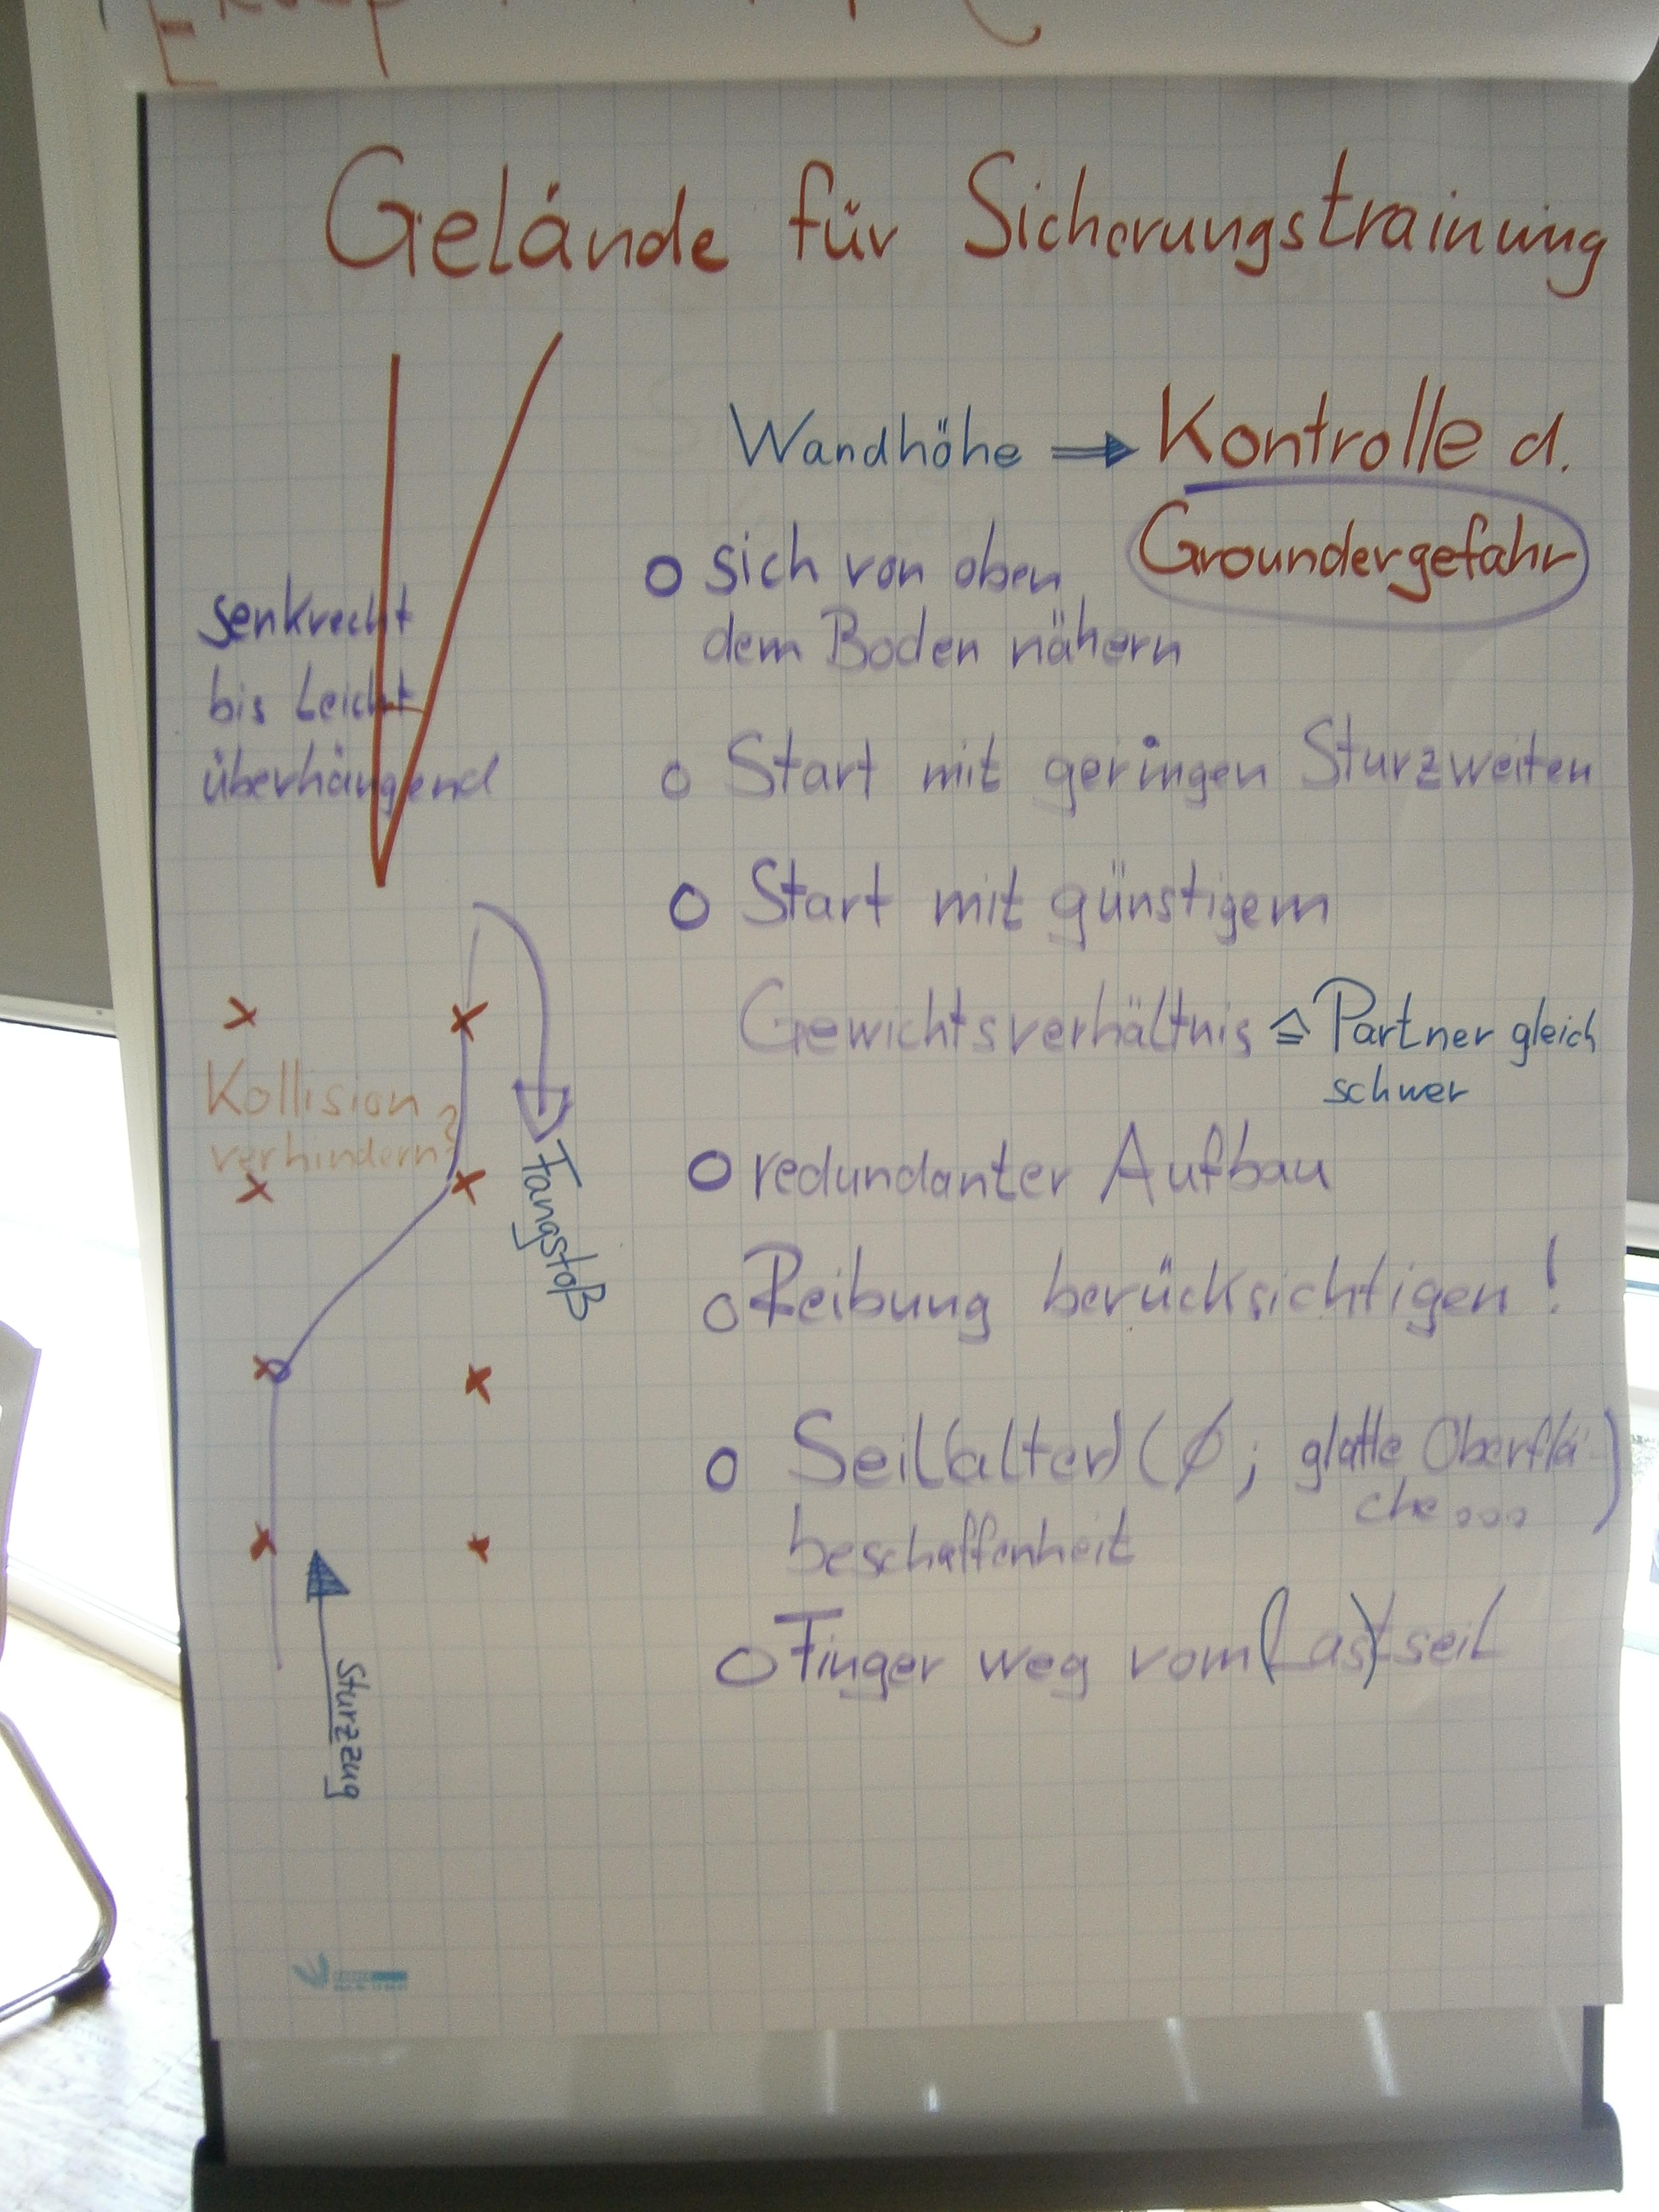 Gelände für Sicherungstraining
Wandhöhe → Kontrolle d.
Groundergefahr
o sich von oben
dem Boden nähern
senkrecht
bis leicht
überhängend
o Start mit geringen Sturzweiten
o Start mit günstigem
Gewichtsverhältnis ≙ Partner gleich
schwer
Kollision
verhindern?
Fangstoß
o redundanter Aufbau
o Reibung berücksichtigen!
o Seil(alter) (Ø; glatte Oberflä-
che...)
beschaffenheit
o Finger weg vom (Last)seil
Sturzzug